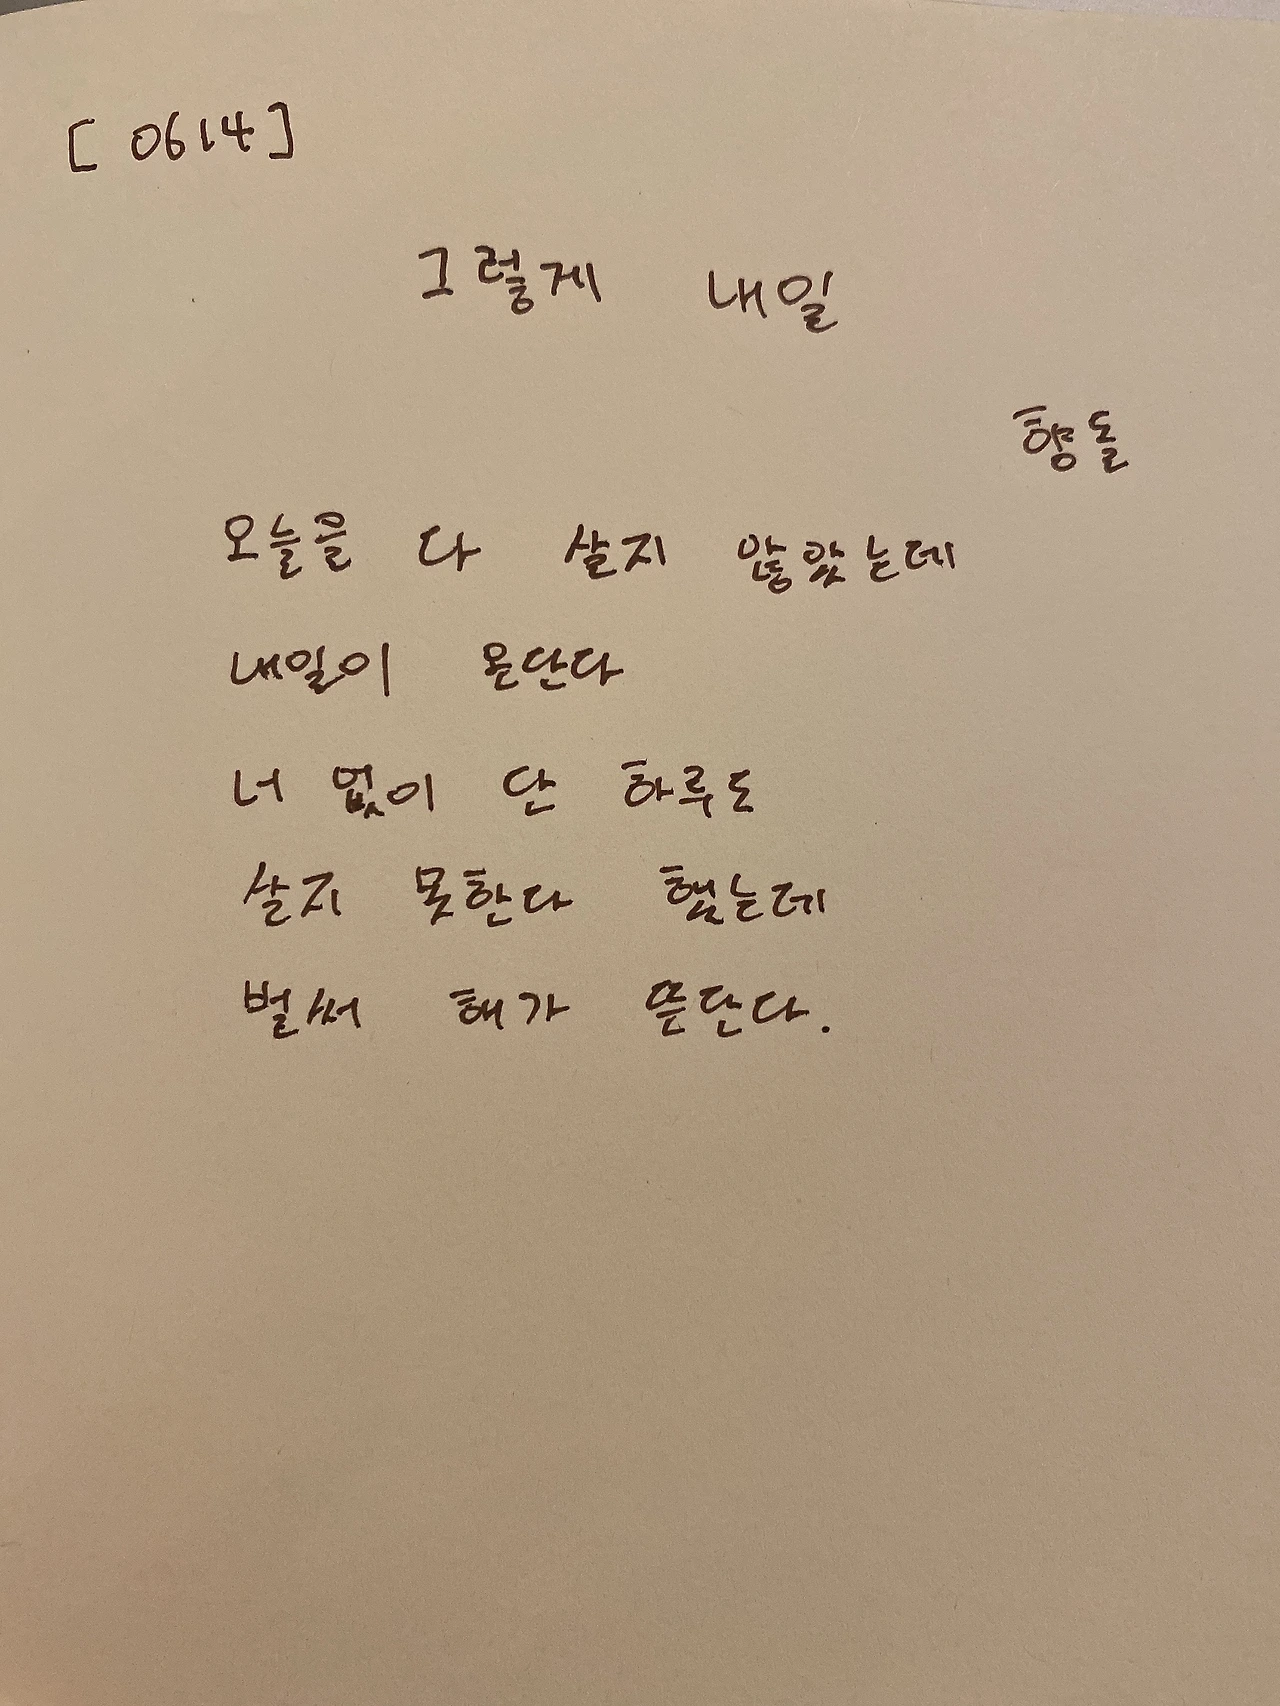 [0614]
그렇게 내일
향돌
오늘을 다 살지 않았는데
내일이 온단다
너 없이 단 하루도
살지 못한다 했는데
벌써 해가 뜬단다.